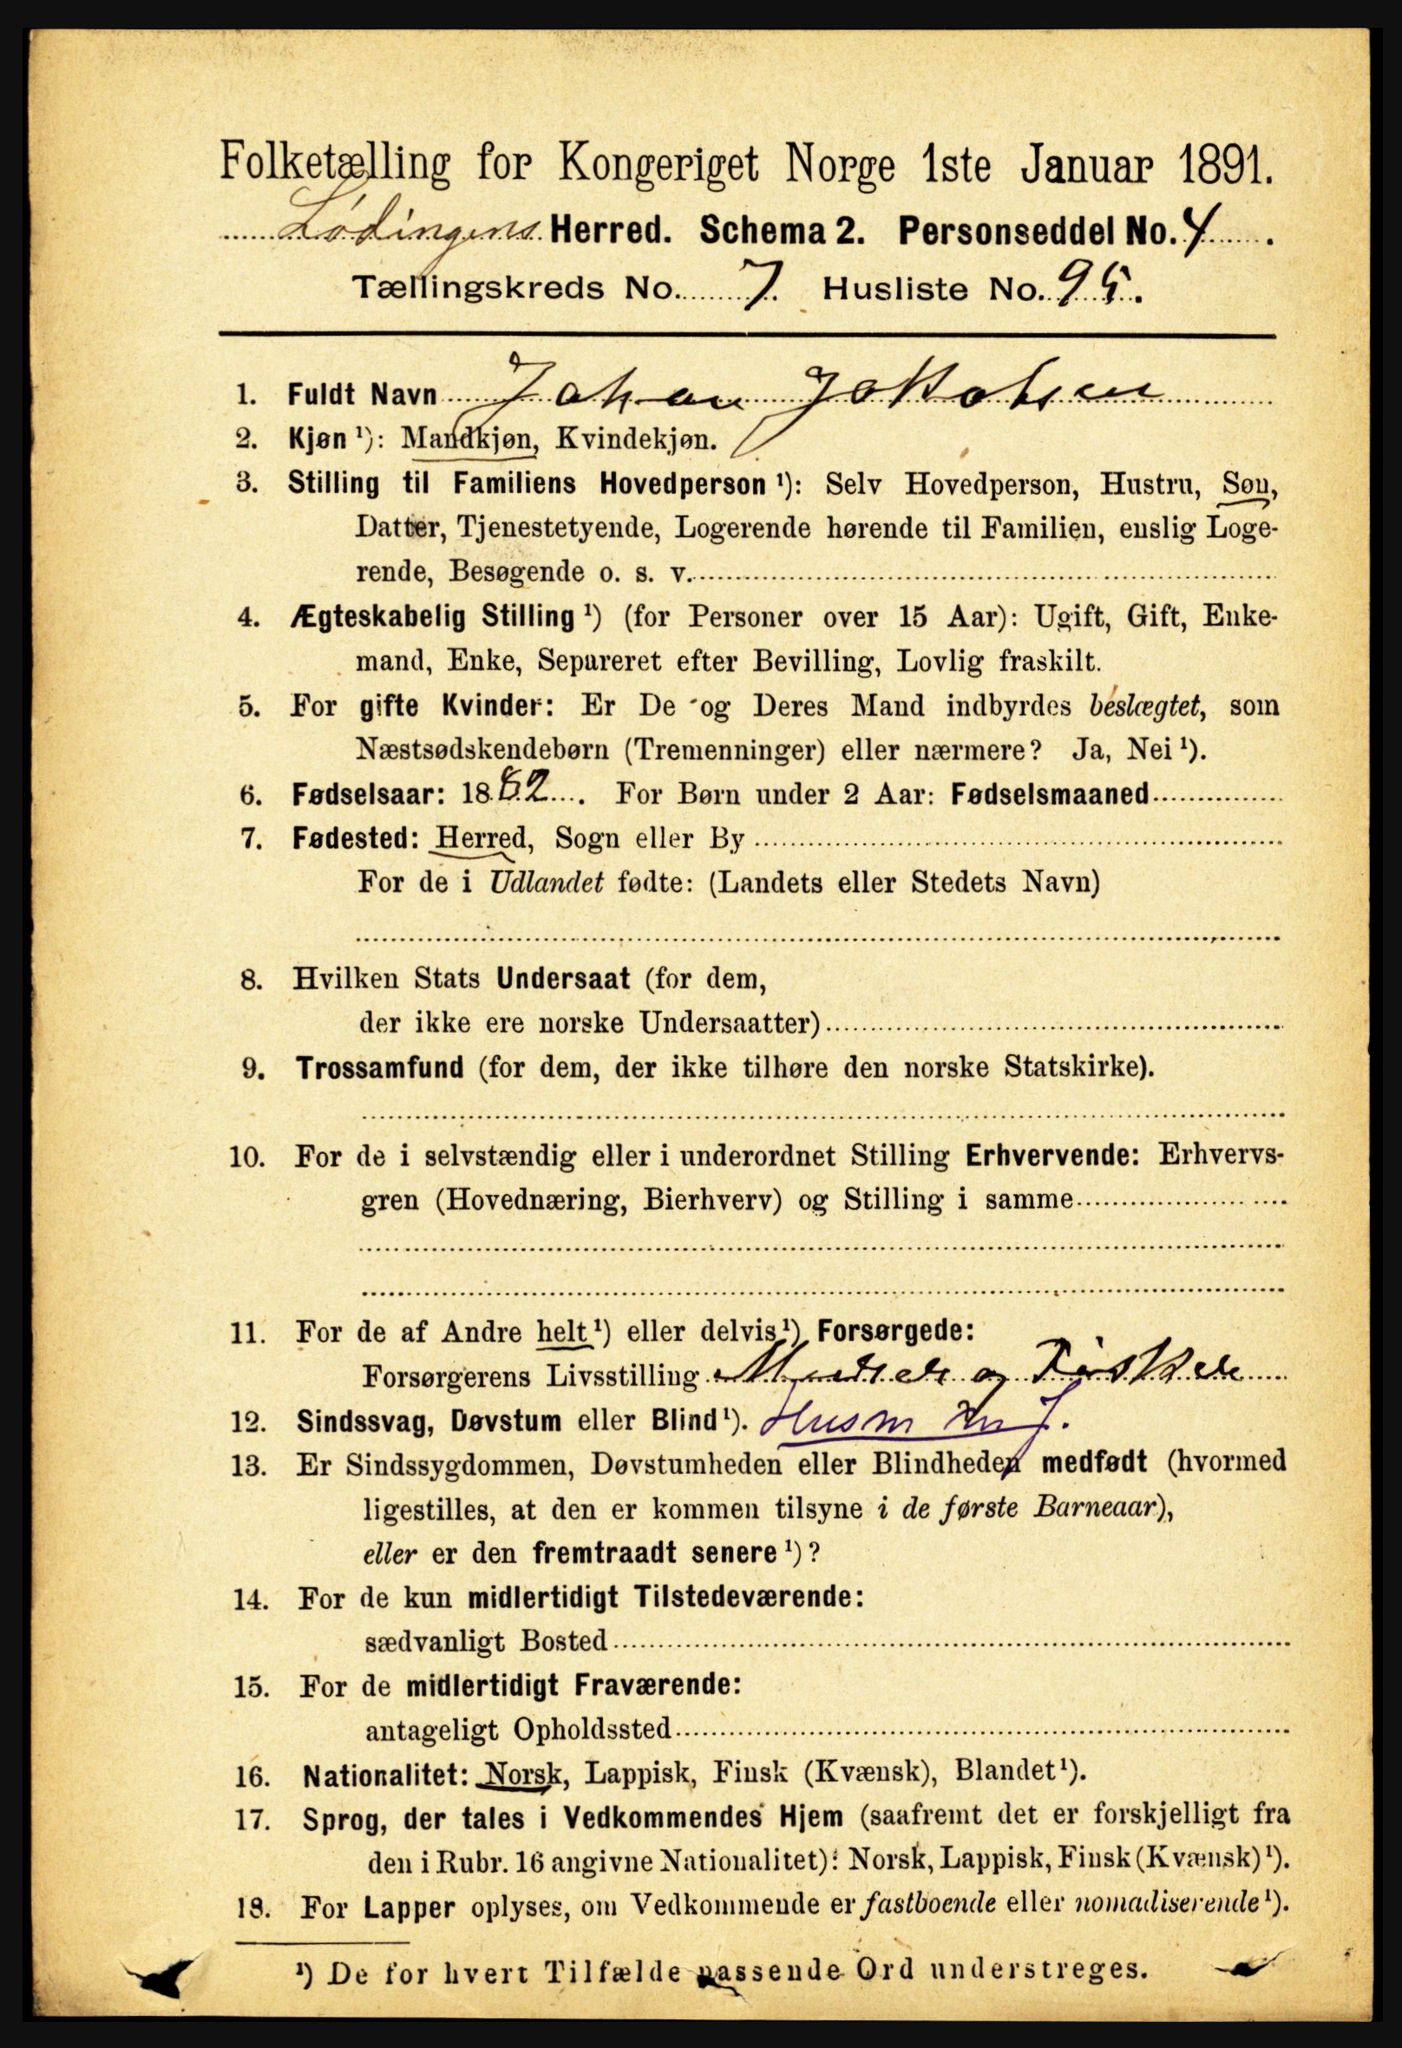 Folketælling for Kongeriget Norge 1ste Januar 1891.
Lødingens Herred. Schema 2. Personseddel No. 4.
Tællingskreds No. 7. Husliste No. 95.
1. Fuldt Navn Johan Jakobsen
2. Kjøn ¹): Mandkjøn, Kvindekjøn.
3. Stilling til Familiens Hovedperson ¹): Selv Hovedperson, Hustru, Søn,
Datter, Tjenestetyende, Logerende hørende til Familien, enslig Loge-
rende, Besøgende o. s. v.
4. Ægteskabelig Stilling ¹) (for Personer over 15 Aar): Ugift, Gift, Enke-
mand, Enke, Separeret efter Bevilling, Lovlig fraskilt.
5. For gifte Kvinder: Er De og Deres Mand indbyrdes beslægtet, som
Næstsødskendebørn (Tremenninger) eller nærmere? Ja, Nei ¹).
6. Fødselsaar: 1882. For Børn under 2 Aar: Fødselsmaaned
7. Fødested: Herred, Sogn eller By
For de i Udlandet fødte: (Landets eller Stedets Navn)
8. Hvilken Stats Undersaat (for dem,
der ikke ere norske Undersaatter)
9. Trossamfund (for dem, der ikke tilhøre den norske Statskirke).
10. For de i selvstændig eller i underordnet Stilling Erhvervende: Erhvervs-
gren (Hovednæring, Bierhverv) og Stilling i samme
11. For de af Andre helt ¹) eller delvis ¹) Forsørgede:
Forsørgerens Livsstilling og Fisker
12. Sindssvag, Døvstum eller Blind ¹). Husm
13. Er Sindssygdommen, Døvstumheden eller Blindheden medfødt (hvormed
ligestilles, at den er kommen tilsyne i de første Barneaar),
eller er den fremtraadt senere ¹)?
14. For de kun midlertidigt Tilstedeværende:
sædvanligt Bosted
15. For de midlertidigt Fraværende:
antageligt Opholdssted
16. Nationalitet: Norsk, Lappisk, Finsk (Kvænsk), Blandet ¹).
17. Sprog, der tales i Vedkommendes Hjem (saafremt det er forskjelligt fra
den i Rubr. 16 angivne Nationalitet): Norsk, Lappisk, Finsk (Kvænsk) ¹).
18. For Lapper oplyses, om Vedkommende er fastboende eller nomadiserende ¹).
¹) De for hvert Tilfælde passende Ord understreges.